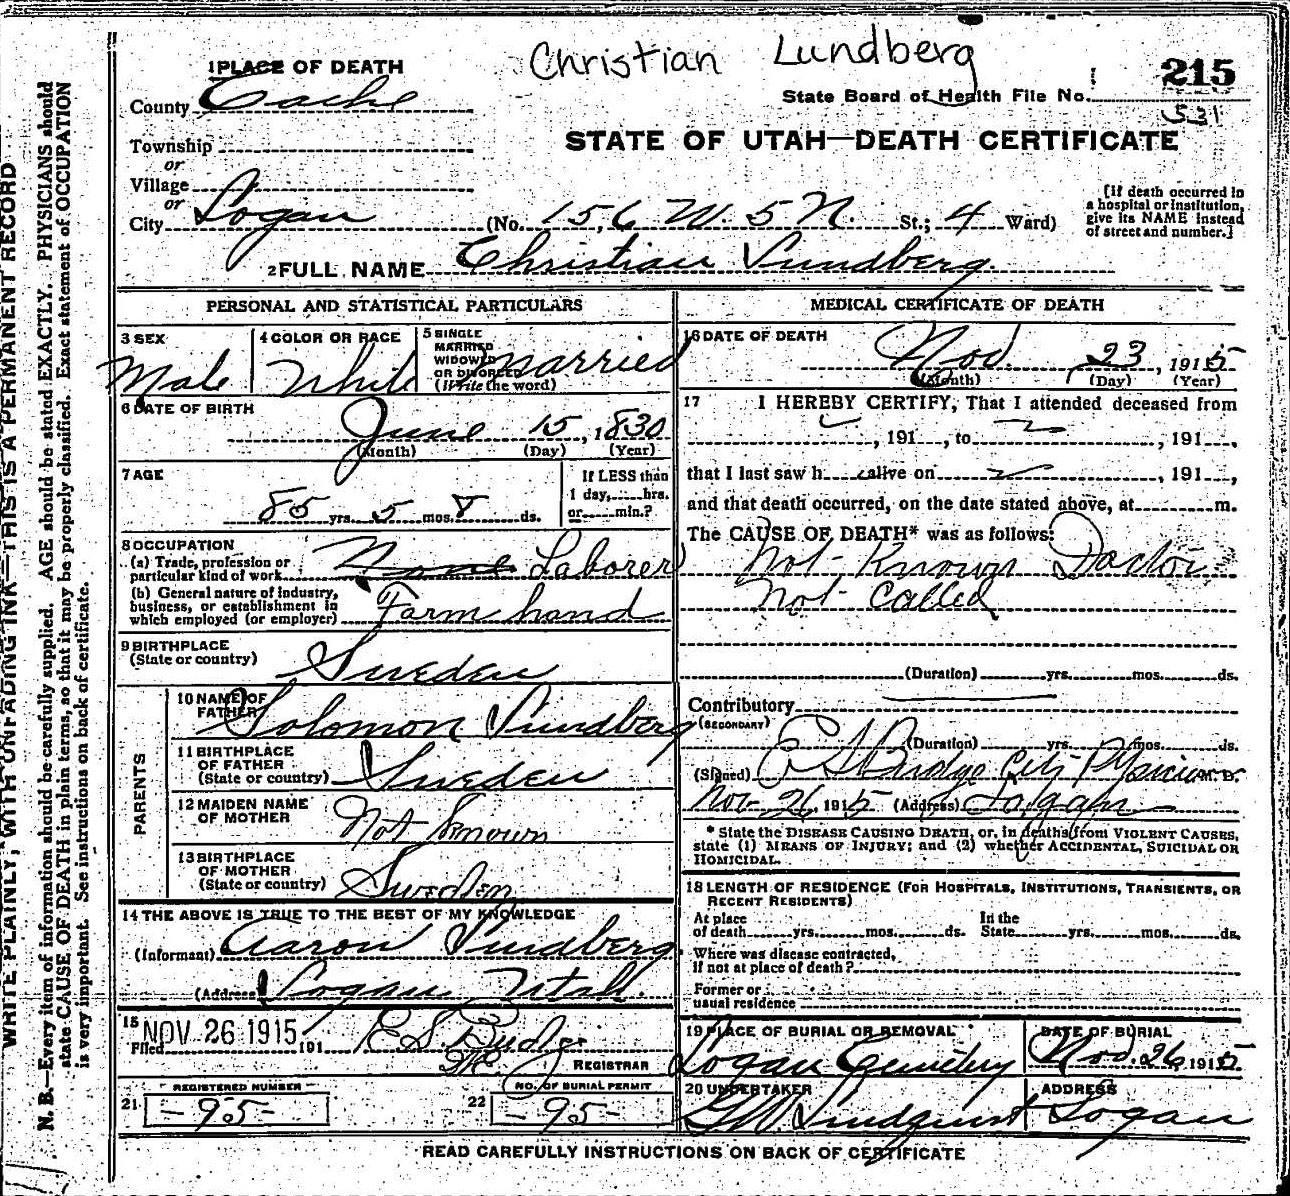 Christian Lundberg
1 PLACE OF DEATH
County Cache
215
State Board of Health File No.
531
STATE OF UTAH—DEATH CERTIFICATE
Township
or
Village
or
City Logan (No. 156 W. 5 N. St.; 4 Ward)
[If death occurred in
a hospital or institution,
give its NAME instead
of street and number.]
2 FULL NAME Christian Lundberg.
PERSONAL AND STATISTICAL PARTICULARS
3 SEX Male
4 COLOR OR RACE White
5 SINGLE
MARRIED
WIDOWED
OR DIVORCED
(Write the word) Married
6 DATE OF BIRTH
June 15, 1830
(Month) (Day) (Year)
7 AGE
85 yrs. 5 mos. 8 ds.
If LESS than
1 day, hrs.
or min.?
8 OCCUPATION
(a) Trade, profession or
particular kind of work None Laborer
(b) General nature of industry,
business, or establishment in
which employed (or employer) Farm hand
9 BIRTHPLACE
(State or country) Sweden
PARENTS
10 NAME OF
FATHER Solomon Lundberg
11 BIRTHPLACE
OF FATHER
(State or country) Sweden
12 MAIDEN NAME
OF MOTHER Not Known
13 BIRTHPLACE
OF MOTHER
(State or country) Sweden
14 THE ABOVE IS TRUE TO THE BEST OF MY KNOWLEDGE
(Informant) Aaron Lundberg
(Address) Logan Utah.
15
Filed NOV. 26 1915 191 E. S. Budge
REGISTRAR
REGISTERED NUMBER
21 -95-
NO. OF BURIAL PERMIT
22 -95-
MEDICAL CERTIFICATE OF DEATH
16 DATE OF DEATH
Nov. 23, 1915
(Month) (Day) (Year)
17 I HEREBY CERTIFY, That I attended deceased from
, 191 , to , 191 ,
that I last saw h alive on , 191 ,
and that death occurred, on the date stated above, at m.
The CAUSE OF DEATH* was as follows:
Not Known Doctor
Not Called
(Duration) yrs. mos. ds.
Contributory
(SECONDARY)
(Duration) yrs. mos. ds.
(Signed) E S Budge City Physician M.D.
Nov 26, 1915 (Address) Logan
* State the DISEASE CAUSING DEATH, or, in deaths from VIOLENT CAUSES,
state (1) MEANS OF INJURY; and (2) whether ACCIDENTAL, SUICIDAL OR
HOMICIDAL.
18 LENGTH OF RESIDENCE (FOR HOSPITALS, INSTITUTIONS, TRANSIENTS, OR
RECENT RESIDENTS)
At place
of death yrs. mos. ds.
In the
State yrs. mos. ds.
Where was disease contracted,
if not at place of death?
Former or
usual residence
19 PLACE OF BURIAL OR REMOVAL
Logan Cemetery
DATE OF BURIAL
Nov. 26 1915
20 UNDERTAKER
Lindquist
ADDRESS
Logan
READ CAREFULLY INSTRUCTIONS ON BACK OF CERTIFICATE
WRITE PLAINLY, WITH UNFADING INK—THIS IS A PERMANENT RECORD
N. B.—Every item of information should be carefully supplied. AGE should be stated EXACTLY. PHYSICIANS should
state CAUSE OF DEATH in plain terms, so that it may be properly classified. Exact statement of OCCUPATION
is very important. See instructions on back of certificate.